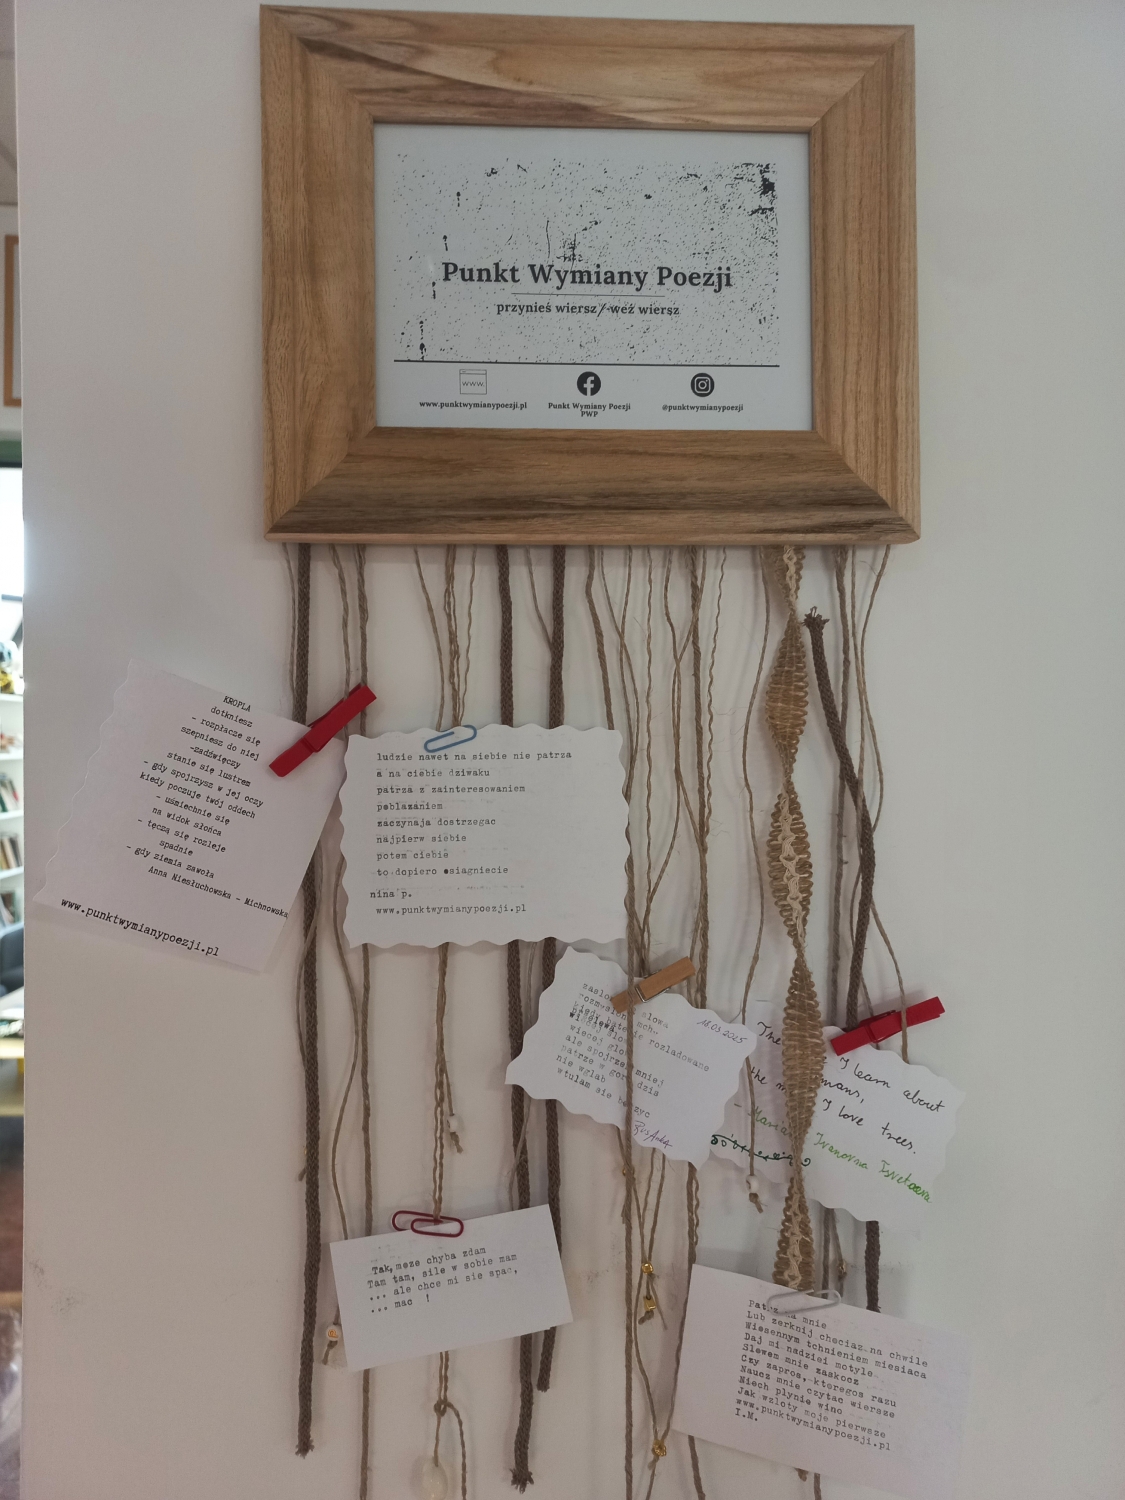 Punkt Wymiany Poezji
przynieś wiersz/weź wiersz
www.
www.punktwymianypoezji.pl
Punkt Wymiany Poezji
PWP
@punktwymianypoezji
KROPLA
dotkniesz
- rozpłacze się
szepniesz do niej
-zadźwięczy
stanie się lustrem
- gdy spojrzysz w jej oczy
kiedy poczuje twój oddech
- uśmiechnie się
na widok słońca
- tęczą się rozleje
spadnie
- gdy ziemia zawoła
Anna Niesłuchowska - Michnowska
www.punktwymianypoezji.pl
ludzie nawet na siebie nie patrza
a na ciebie dziwaku
patrza z zainteresowaniem
poblazaniem
zaczynaja dostrzegac
najpierw siebie
potem ciebie
to dopiero osiagniecie
nina p.
www.punktwymianypoezji.pl
slowa
rozladowane
18.03.2025
wiecej
ale spojrze mniej
patrze w gore dzis
nie wglab
wtulam sie
The I learn about
the
I love trees.
- Ivanovna
Tak, moze chyba zdam
Tam tam, sile w sobie mam
... ale chce mi sie spac,
... mac !
na mnie
Lub zerknij chociaz na chwile
Wiosennym tchnieniem miesiaca
Daj mi nadziei motyle
Slowem mnie zaskocz
Czy zapros, ktoregos razu
Naucz mnie czytac wiersze
Niech plynie wino
Jak wzloty moje pierwsze
www.punktwymianypoezji.pl
I.M.